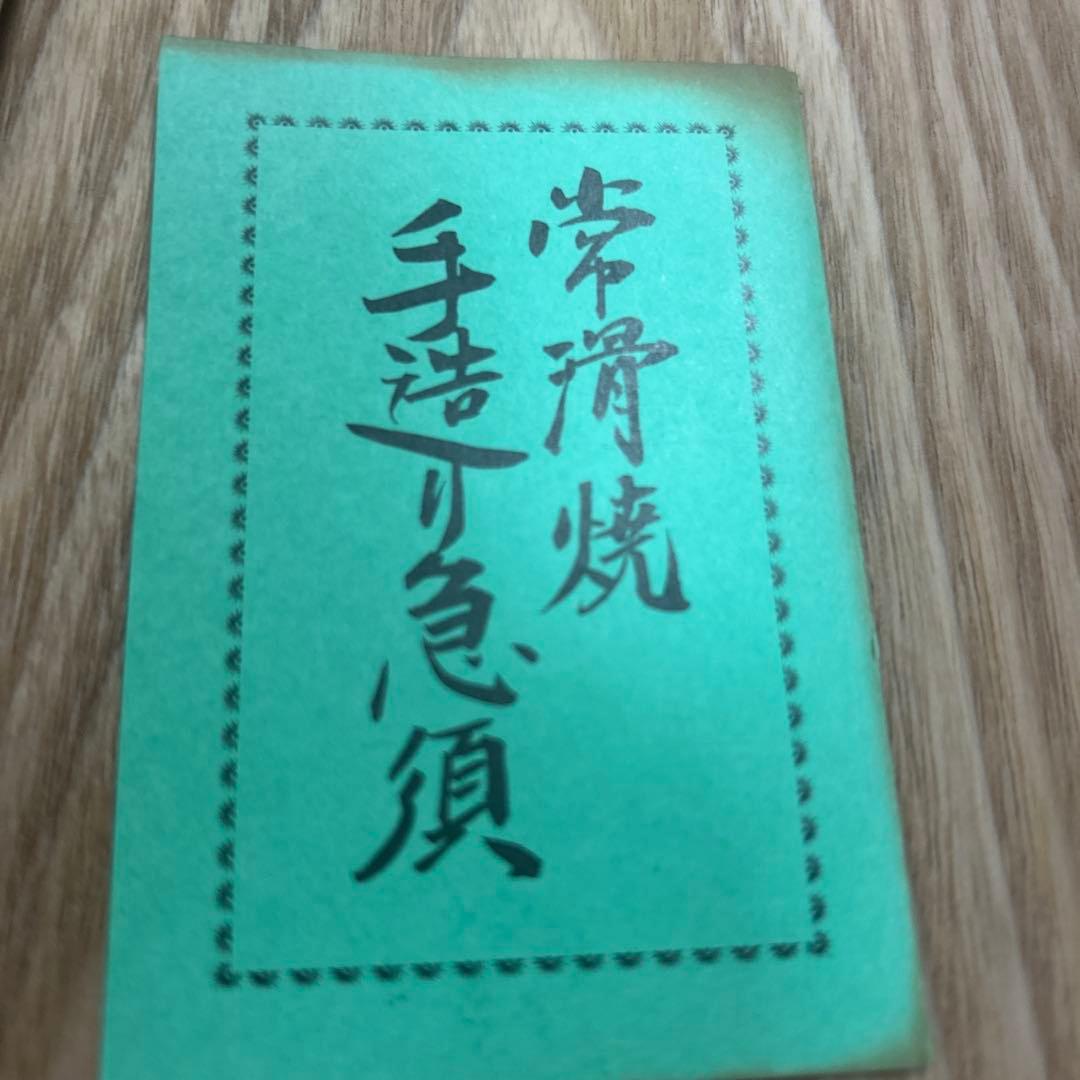 常滑焼
手造り急須